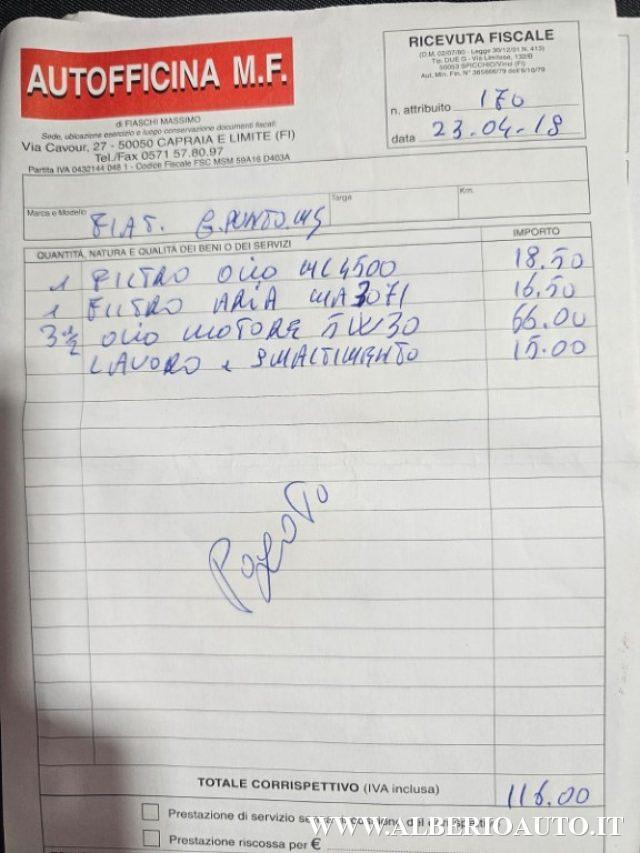 AUTOFFICINA M.F.
di FIASCHI MASSIMO
Sede, ubicazione esercizio e luogo conservazione documenti fiscali:
Via Cavour, 27 - 50050 CAPRAIA E LIMITE (FI)
Tel./Fax 0571 57.80.97
Partita IVA 0432144 048 1 - Codice Fiscale FSC MSM 59A16 D403A
RICEVUTA FISCALE
(D.M. 02/07/80 - Legge 30/12/91 N. 413)
Tip. DUE G - Via Limitese, 132/B
50053 SPICCHIO/Vinci (FI)
Aut. Min. Fin. N° 365666/79 dell'8/10/79
n. attribuito 170
data 23.04-18
Marca e Modello FIAT. G.PUNTO.
Targa
Km.
QUANTITÀ, NATURA E QUALITÀ DEI BENI O DEI SERVIZI IMPORTO
1 FILTRO OLIO ML4500 18.50
1 FILTRO ARIA MA3071 16.50
3 1/2 OLIO MOTORE 5W30 66.00
LAVORO e SMALTIMENTO 15.00
PAGATO
TOTALE CORRISPETTIVO (IVA inclusa) 116.00
Prestazione di servizio
Prestazione riscossa per €
WWW.ALBERIOAUTO.IT